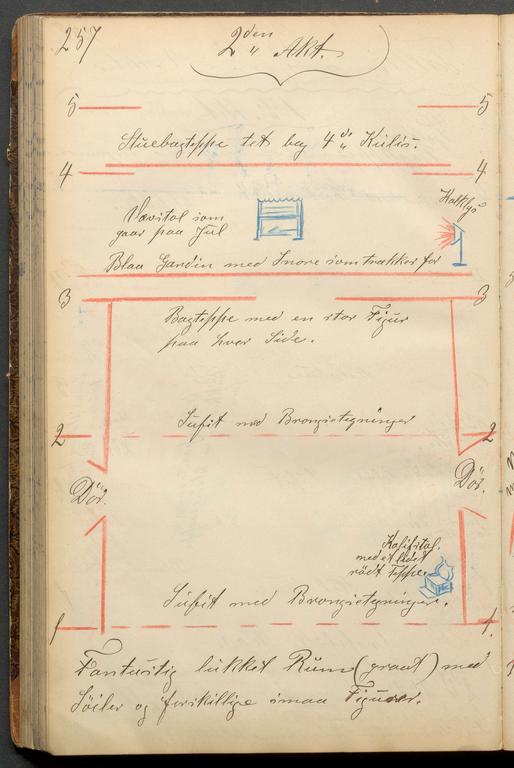 257
2den Akt.
5 5
Stuebagteppe tet bag 4de Kulis.
4 4
Kalklys
Vævstol som
gaar paa Hjul
Blaa Gardin med Snore som trækkes for
3 3
Bagteppe med en stor Figur
paa hver Side.
2 2
Sufit med Bronzetegninger
Dör. Dör.
med et lidet
rödt Teppe.
Sufit med Bronzetegninger.
1 1.
Fantastig lukket Rum (graat) med
Söiler og forskillige smaa Figurer.